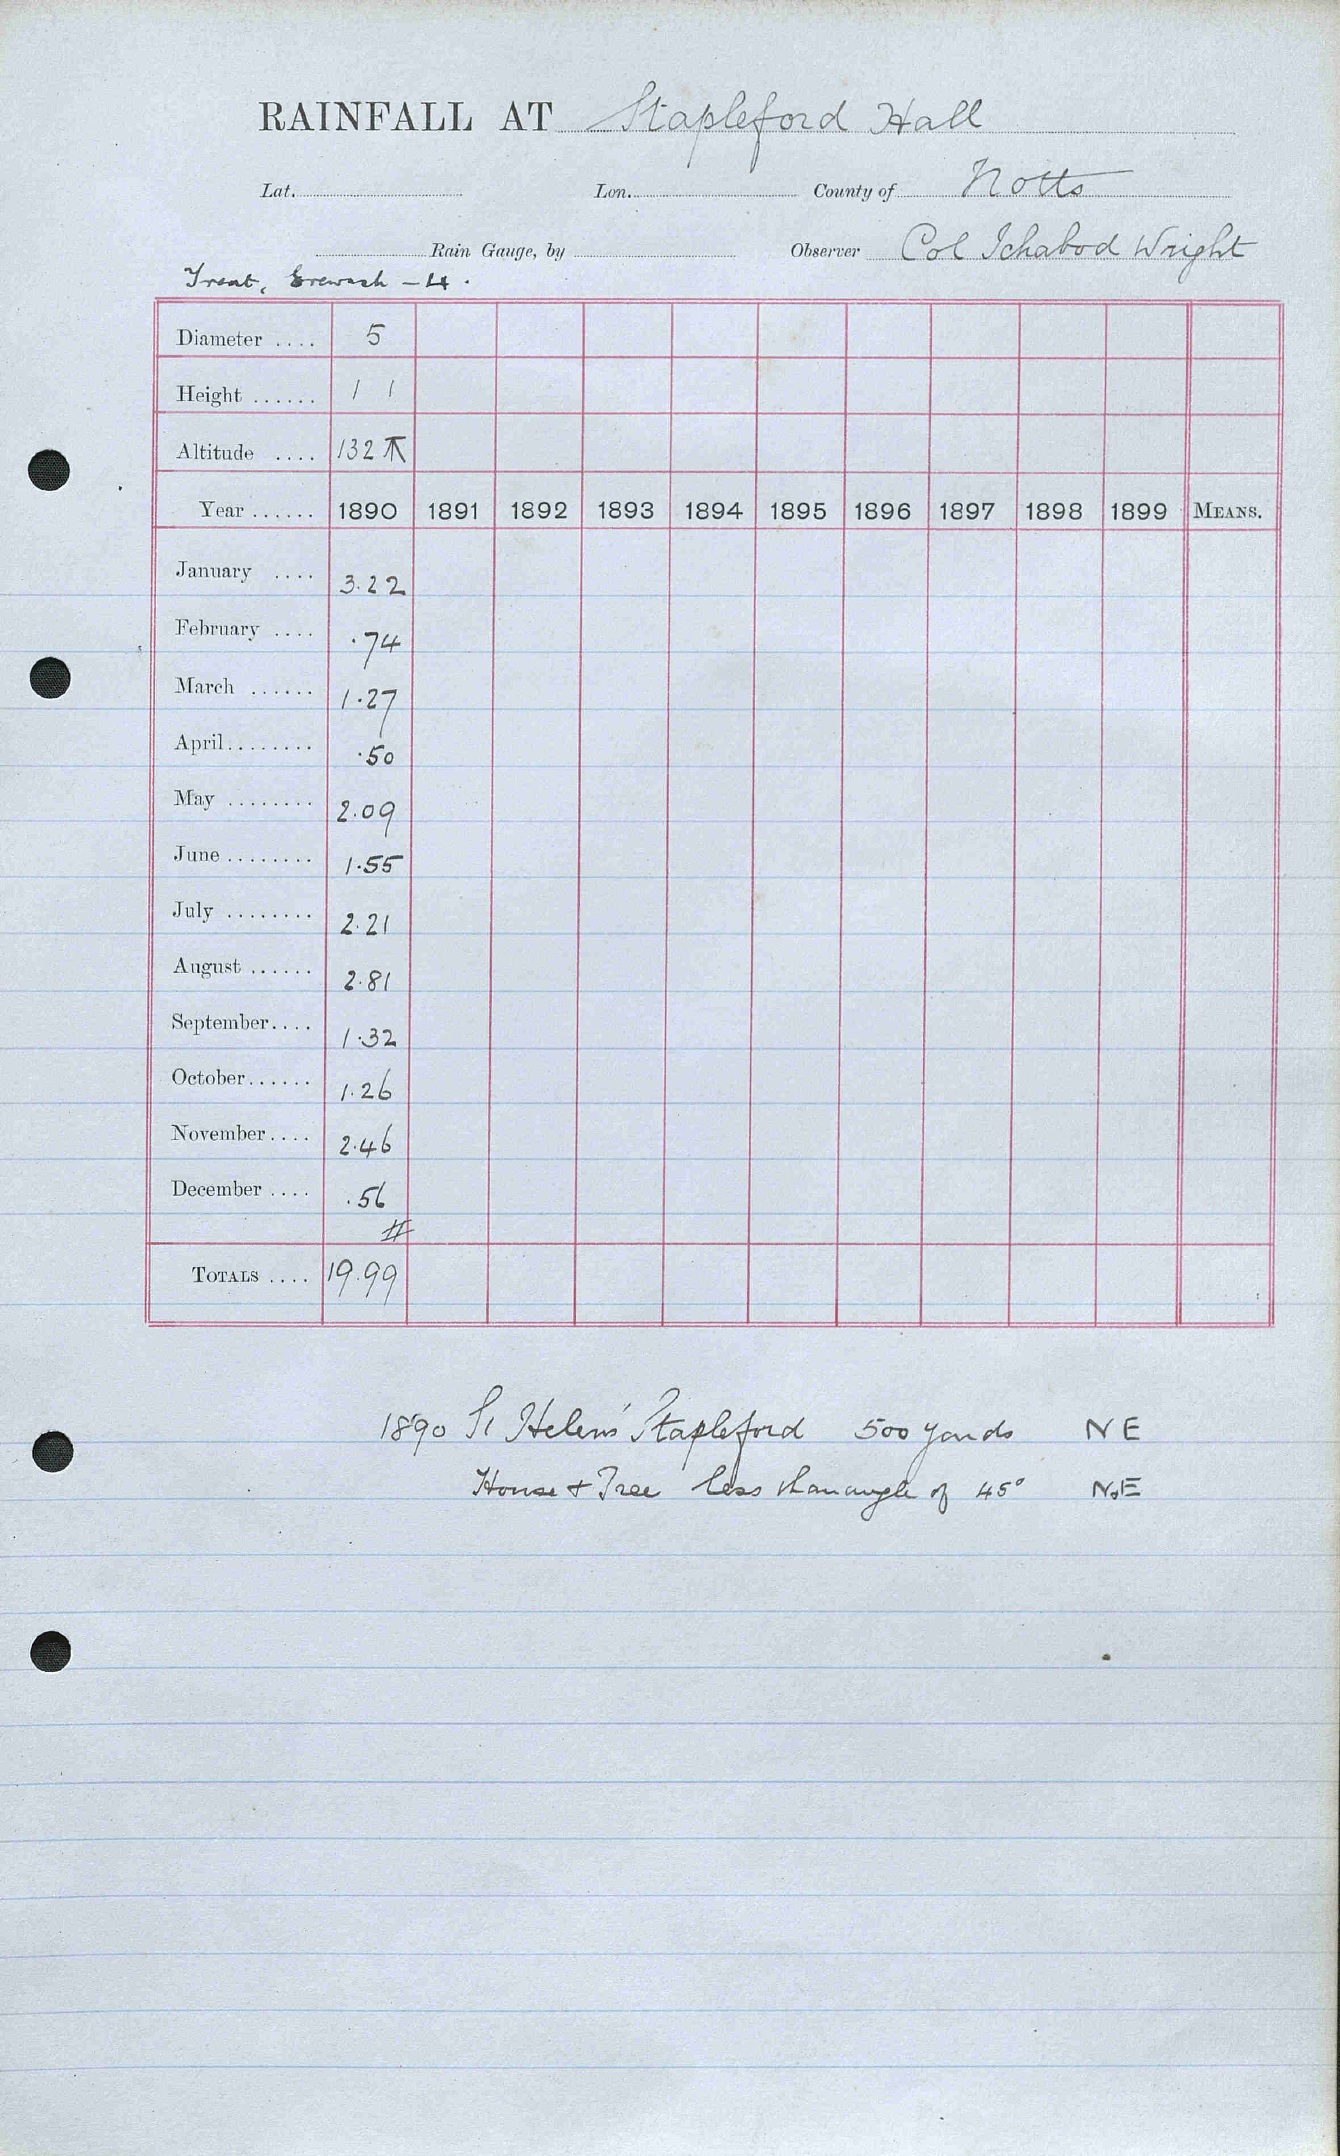 RAINFALL AT Stapleford Hall
Lat. Lon. County of Notts
Rain Gauge, by Observer Col Ichabod Wright
Trent, Erewash - 4.
Diameter .... 5
Height ...... 1 1
Altitude .... 132
Year ...... 1890 1891 1892 1893 1894 1895 1896 1897 1898 1899 MEANS.
January .... 3.22
February .... .74
March ...... 1.27
April ........ .50
May ........ 2.09
June ........ 1.55
July ........ 2.21
August ...... 2.81
September.... 1.32
October...... 1.26
November.... 2.46
December .... .56
#
TOTALS .... 19.99
1890 St Helens' Stapleford 500 yards NE
House + Tree less than angle of 45° N.E